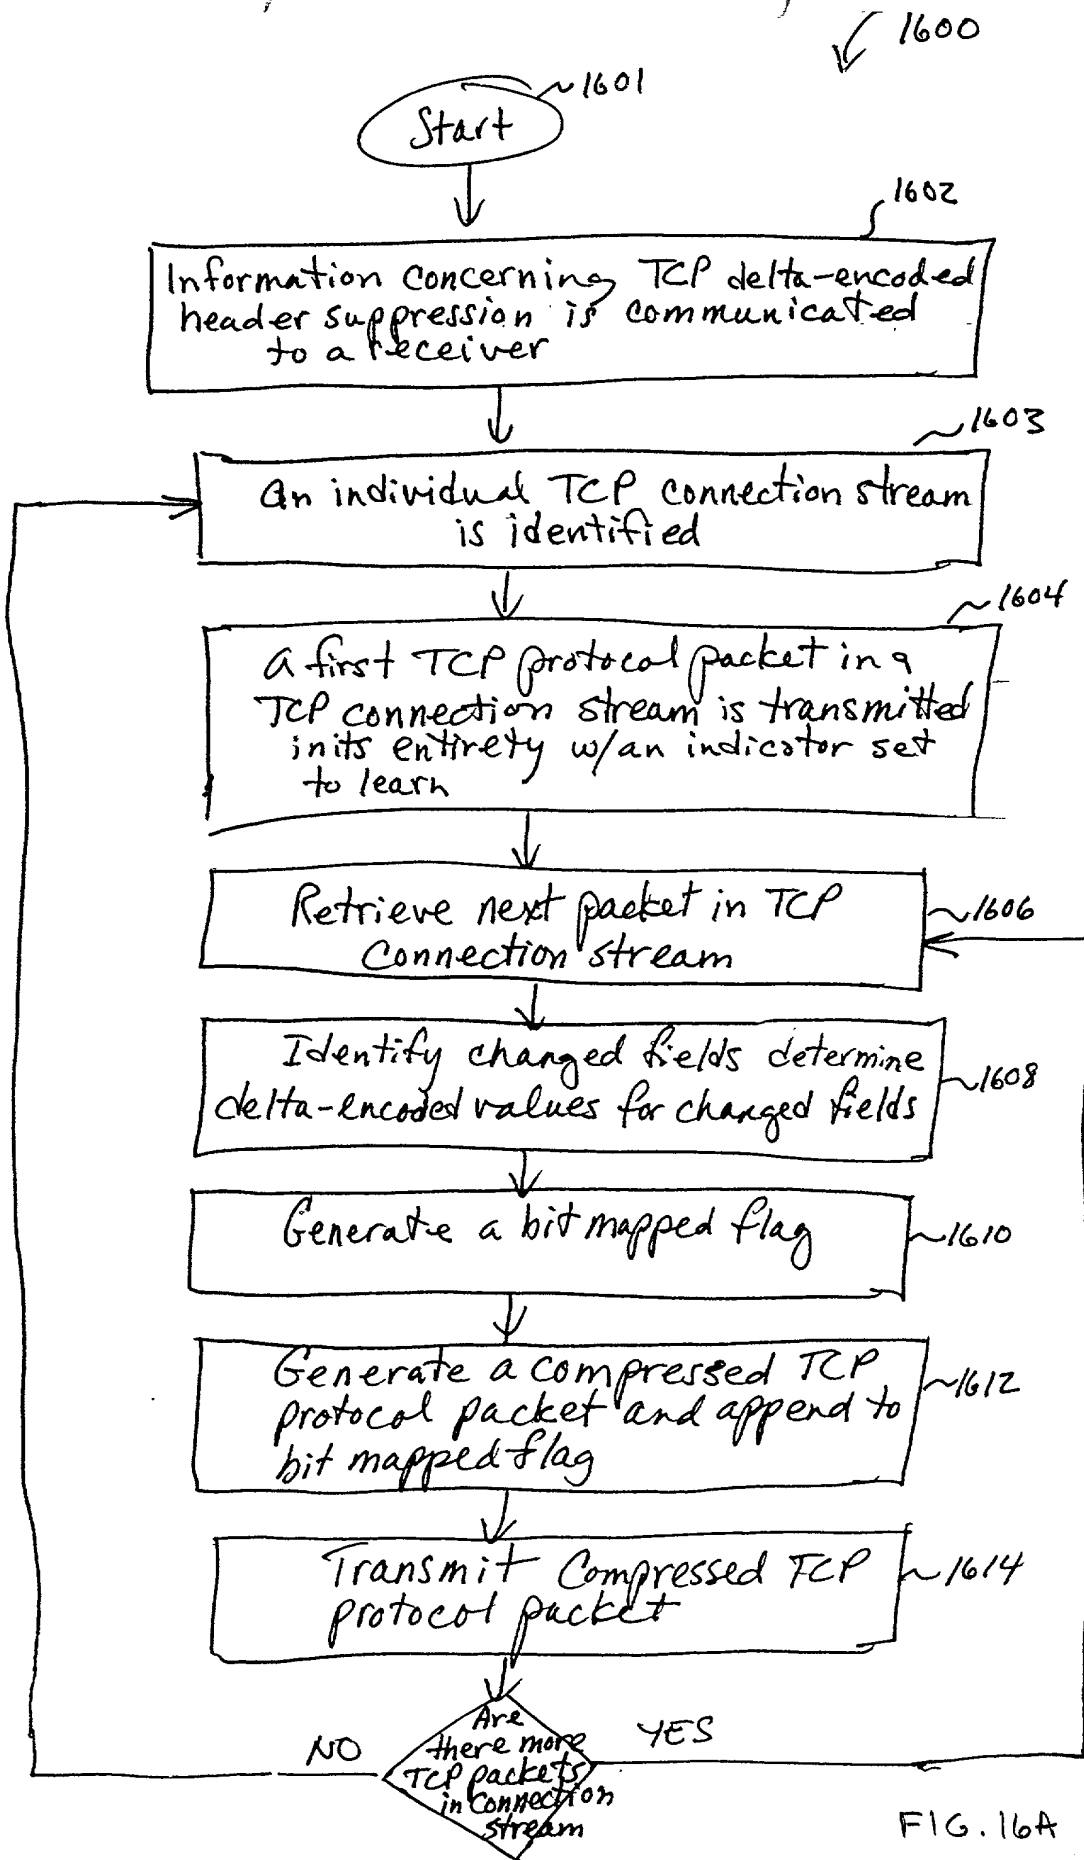 1600
1601
Start
1602
Information concerning TCP delta-encoded
header suppression is communicated
to a receiver
1603
An individual TCP connection stream
is identified
1604
A first TCP protocol packet in a
TCP connection stream is transmitted
in its entirety w/an indicator set
to learn
Retrieve next packet in TCP
Connection stream
1606
Identify changed fields determine
delta-encoded values for changed fields
1608
Generate a bit mapped flag
1610
Generate a compressed TCP
protocol packet and append to
bit mapped flag
1612
Transmit Compressed TCP
protocol packet
1614
Are
there more
TCP packets
in Connection
stream
NO
YES
FIG. 16A